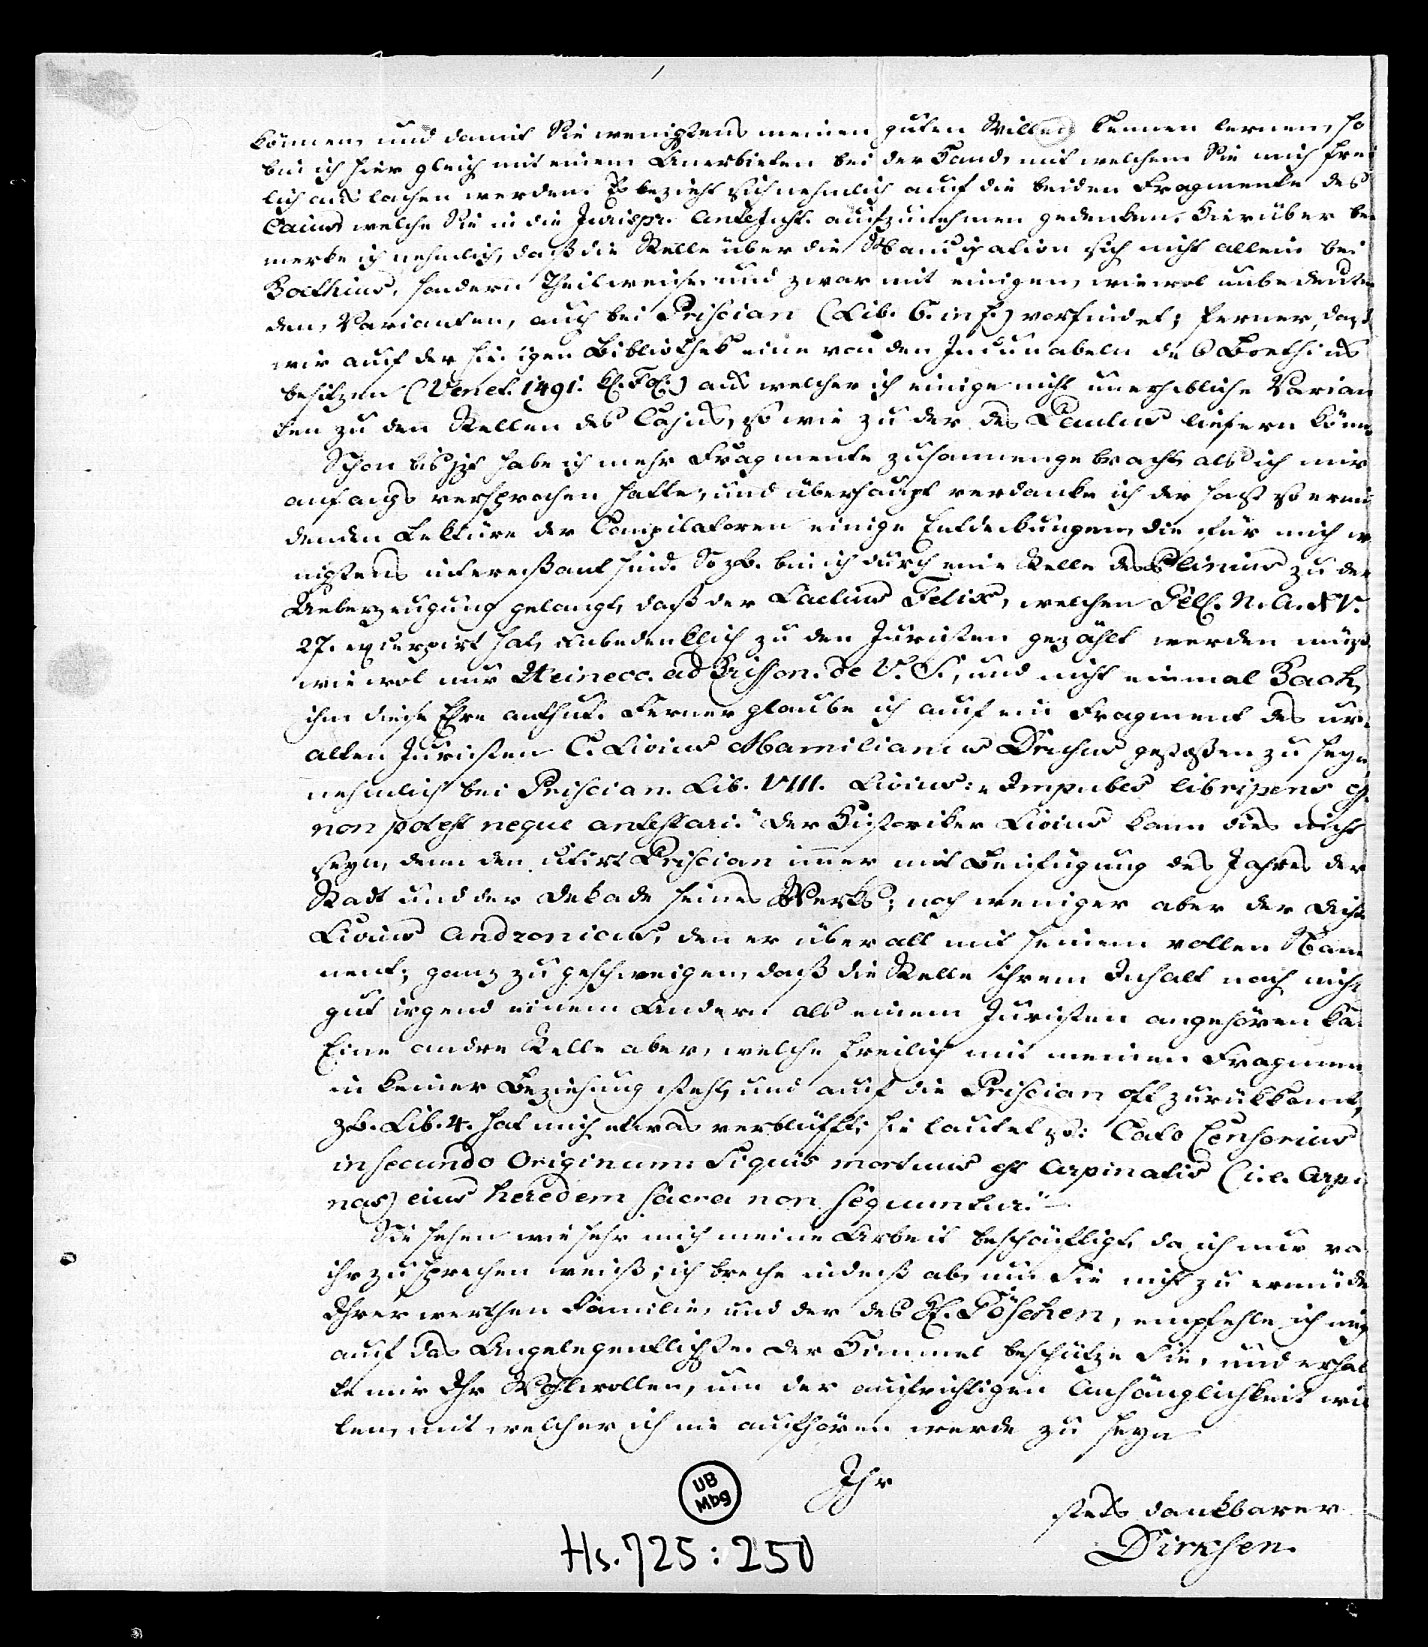 können, und damit Sie wenigstens meinen guten Willen kennen lernen, so
bin ich hier gleich mit einem Anerbieten bei der Hand, mit welchem Sie mich frei
lich aus lachen werden. Es bezieht sich nehmlich auf die beiden Fragmente des
Caius welche Sie in die Jurispr. Antejust. aufzunehmen gedenken. Hierüber be
merke ich nehmlich, daß die Stelle über die Mancipation sich nicht allein bei
Boethius, sondern Theilweise, und zwar mit einigen, wiewol unbedeuten
den, Varianten, auch bei Priscian (Lib. 6. in f.) vorfindet; ferner, daß
wir auf der hiesigen Bibliothek eine von den Incunabeln des Boethius
besitzen (Venet. 1491. kl. Fol.) aus welcher ich einige nicht unerhebliche Varian
ten zu den Stellen des Cajus, so wie zu der des Paulus liefern könn
Schon bis jzt habe ich mehr Fragmente zusammengebracht, als ich mir
anfangs versprochen hatte; und überhaupt verdanke ich der fast so ermü
denden Lektüre der Compilatoren einige Entdeckungen, die für mich we
nigstens interessant sind. So zB. bin ich durch eine Stelle des Plinius zu der
Ueberzeugung gelangt, daß der Laelius Felix, welchen Gell. N. A. XV.
27. excerpirt hat, unbedenklich zu den Juristen gezählt werden müße
wiewol nur Heinecc. ad Brisson. de V. S., und nicht einmal Bach,
ihm diese Ehre anthut. Ferner glaube ich auf ein Fragment des ur
alten Juristen C. Livius Mamilianus Drusus gestoßen zu seyn
nehmlich bei Priscian. Lib. VIII. Livius: „Impubes libripens eſſe
non potest neque antestari." Der Historiker Livius kann dies nicht
seyn, denn den citirt Priscian immer mit Beifügung des Jahres der
Stadt und der Dekade seines Werks; noch weniger aber der Dicht
Livius Andronicus, den er überall mit seinem vollen Nam
nent; ganz zu geschweigen, daß die Stelle ihrem Inhalt nach nicht
gut irgend einem Andern als einem Juristen angehören ka
Eine andre Stelle aber, welche freilich mit meinen Fragmen
in keiner Beziehung steht, und auf die Priscian oft zurükkomt,
zB. Lib. 4. hat mich etwas verblüfft; sie lautet so: Cato Censorius
in secundo Originum: Siquis mortuus est Arpinatis (i. e. Arpi
nas) eius heredem sacra non sequuntur."
Sie sehen wie sehr mich meine Arbeit beschäftigt, da ich nur vo
ihr zu sprechen weiß; ich breche indeß ab, um Sie nicht zu ermüde
Ihrer werthen Familie, und der des H. Göschen, empfehle ich mich
auf das Angelegentlichste. Der Himmel beschütze Sie, und erhal
te mir Ihr Wohlwollen, um der aufrichtigen Anhänglichkeit wil
len, mit welcher ich nie aufhören werde zu seyn
Ihr
stets dankbarer
Dirksen.
UB
Mbg
Hs. 725 : 250